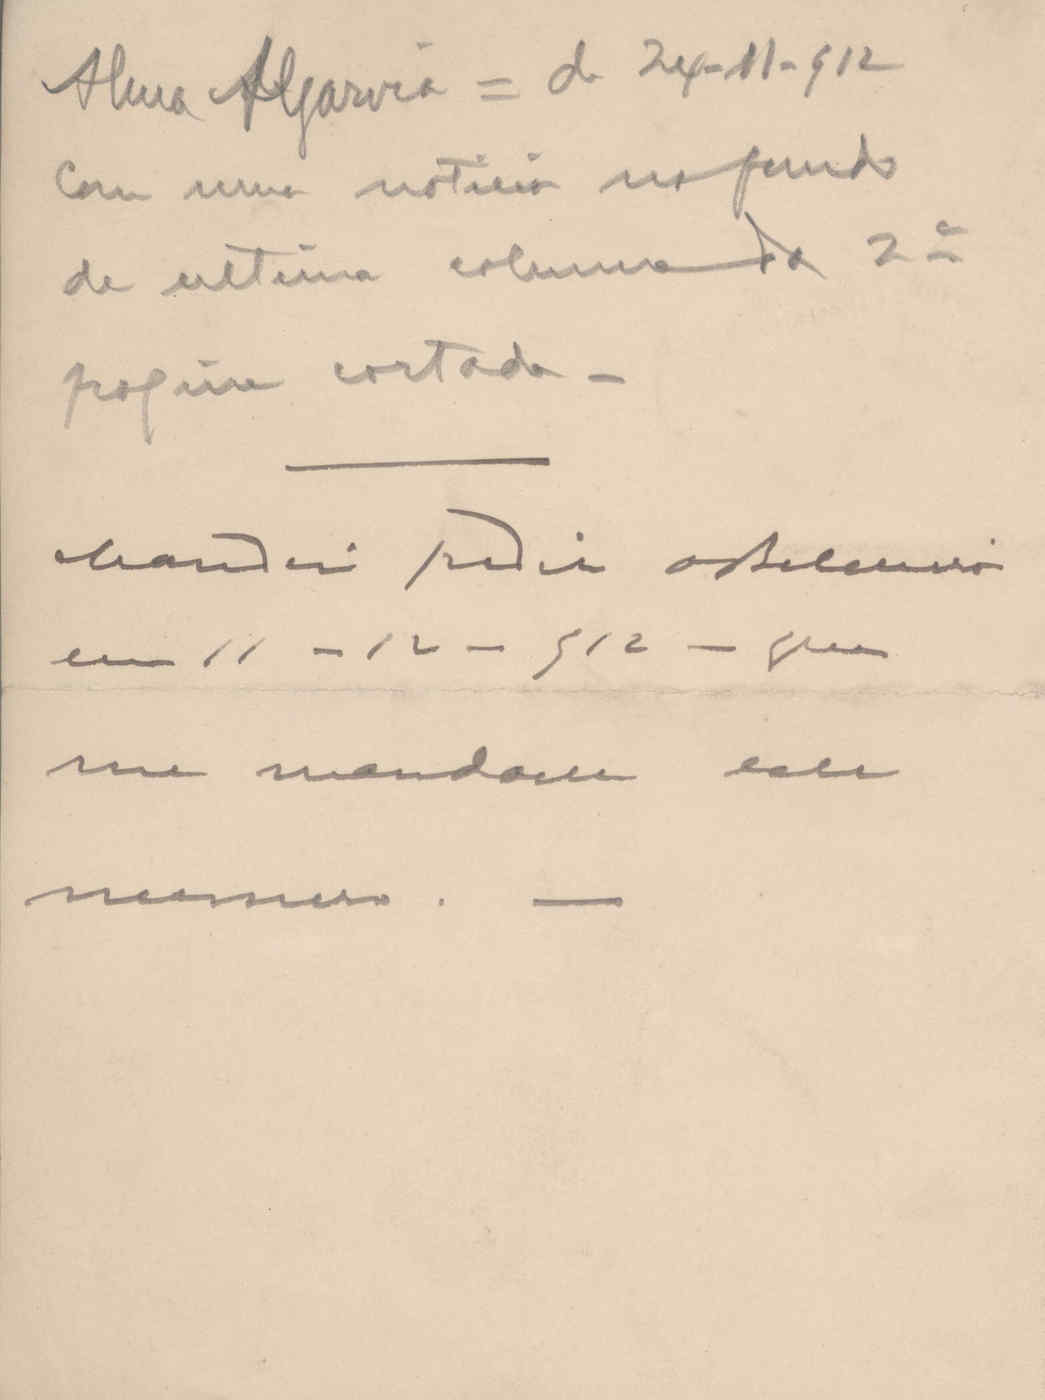 Alma Algarvia = de 24-11-912
Com uma noticia no fundo
de ultima columna da 2ª
pagina cortada -
Mandei pedir
em 11 - 12 - 912 - que
me mandasse este
numero. —